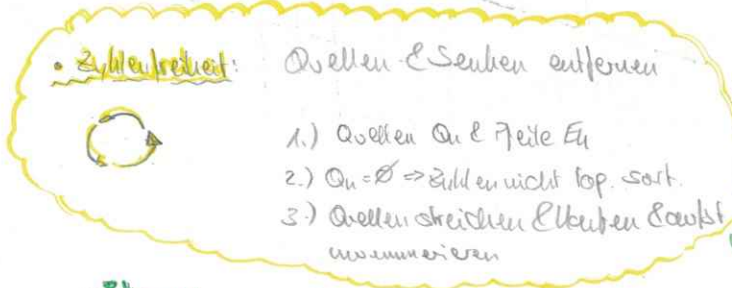 • Zyklenfreiheit: Quellen & Senken entfernen
1.) Quellen Qn & Pfeile En
2.) Qn = ∅ => Zyklen nicht top. sort.
3.) Quellen streichen & Kanten &
umnummerieren